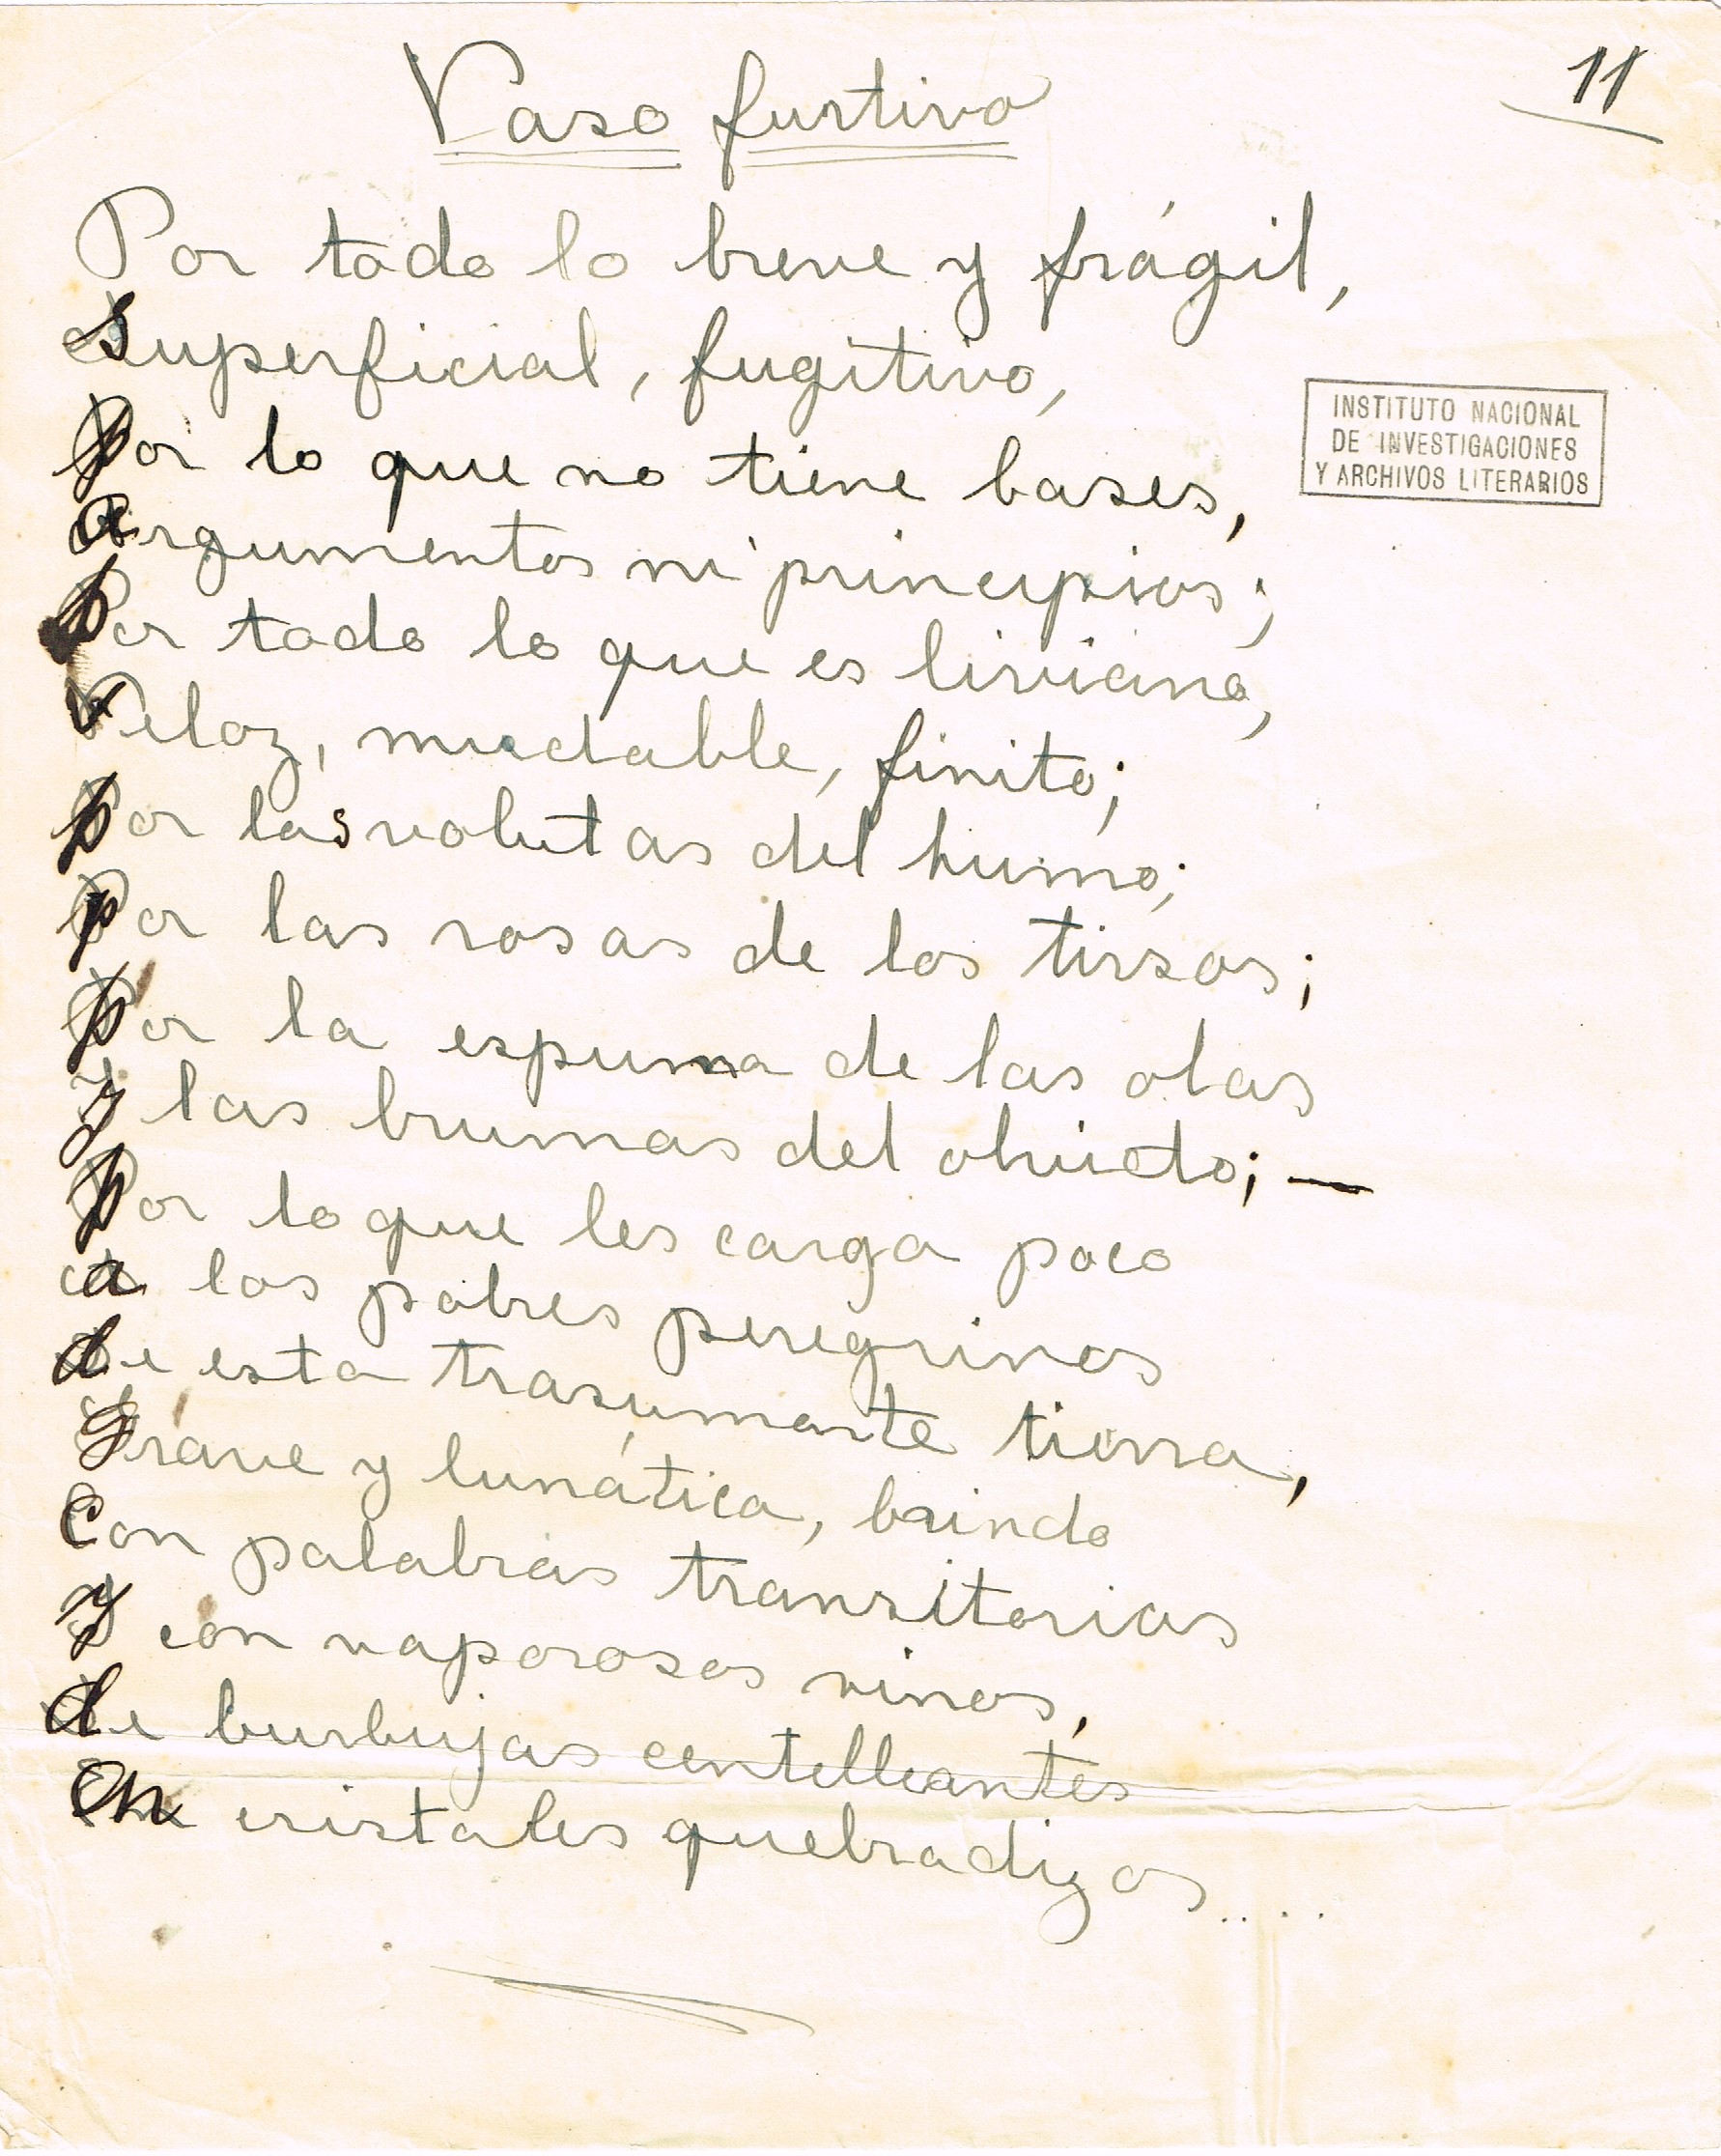 Vaso furtivo
11
Por todo lo breve y frágil,
superficial, fugitivo,
por lo que no tiene bases,
argumentos ni principios;
por todo lo que es liviano,
veloz, mudable, finito;
por las volutas del humo;
por las rosas de los tirsos;
por la espuma de las olas
y las brumas del olvido; —
por lo que les carga poco
a los pobres peregrinos
de esta trasumante tierra,
grave y lunática, brindo
con palabras transitorias
y con vaporosos vinos,
de burbujas centelleantes
en cristales quebradizos....
INSTITUTO NACIONAL
DE INVESTIGACIONES
Y ARCHIVOS LITERARIOS